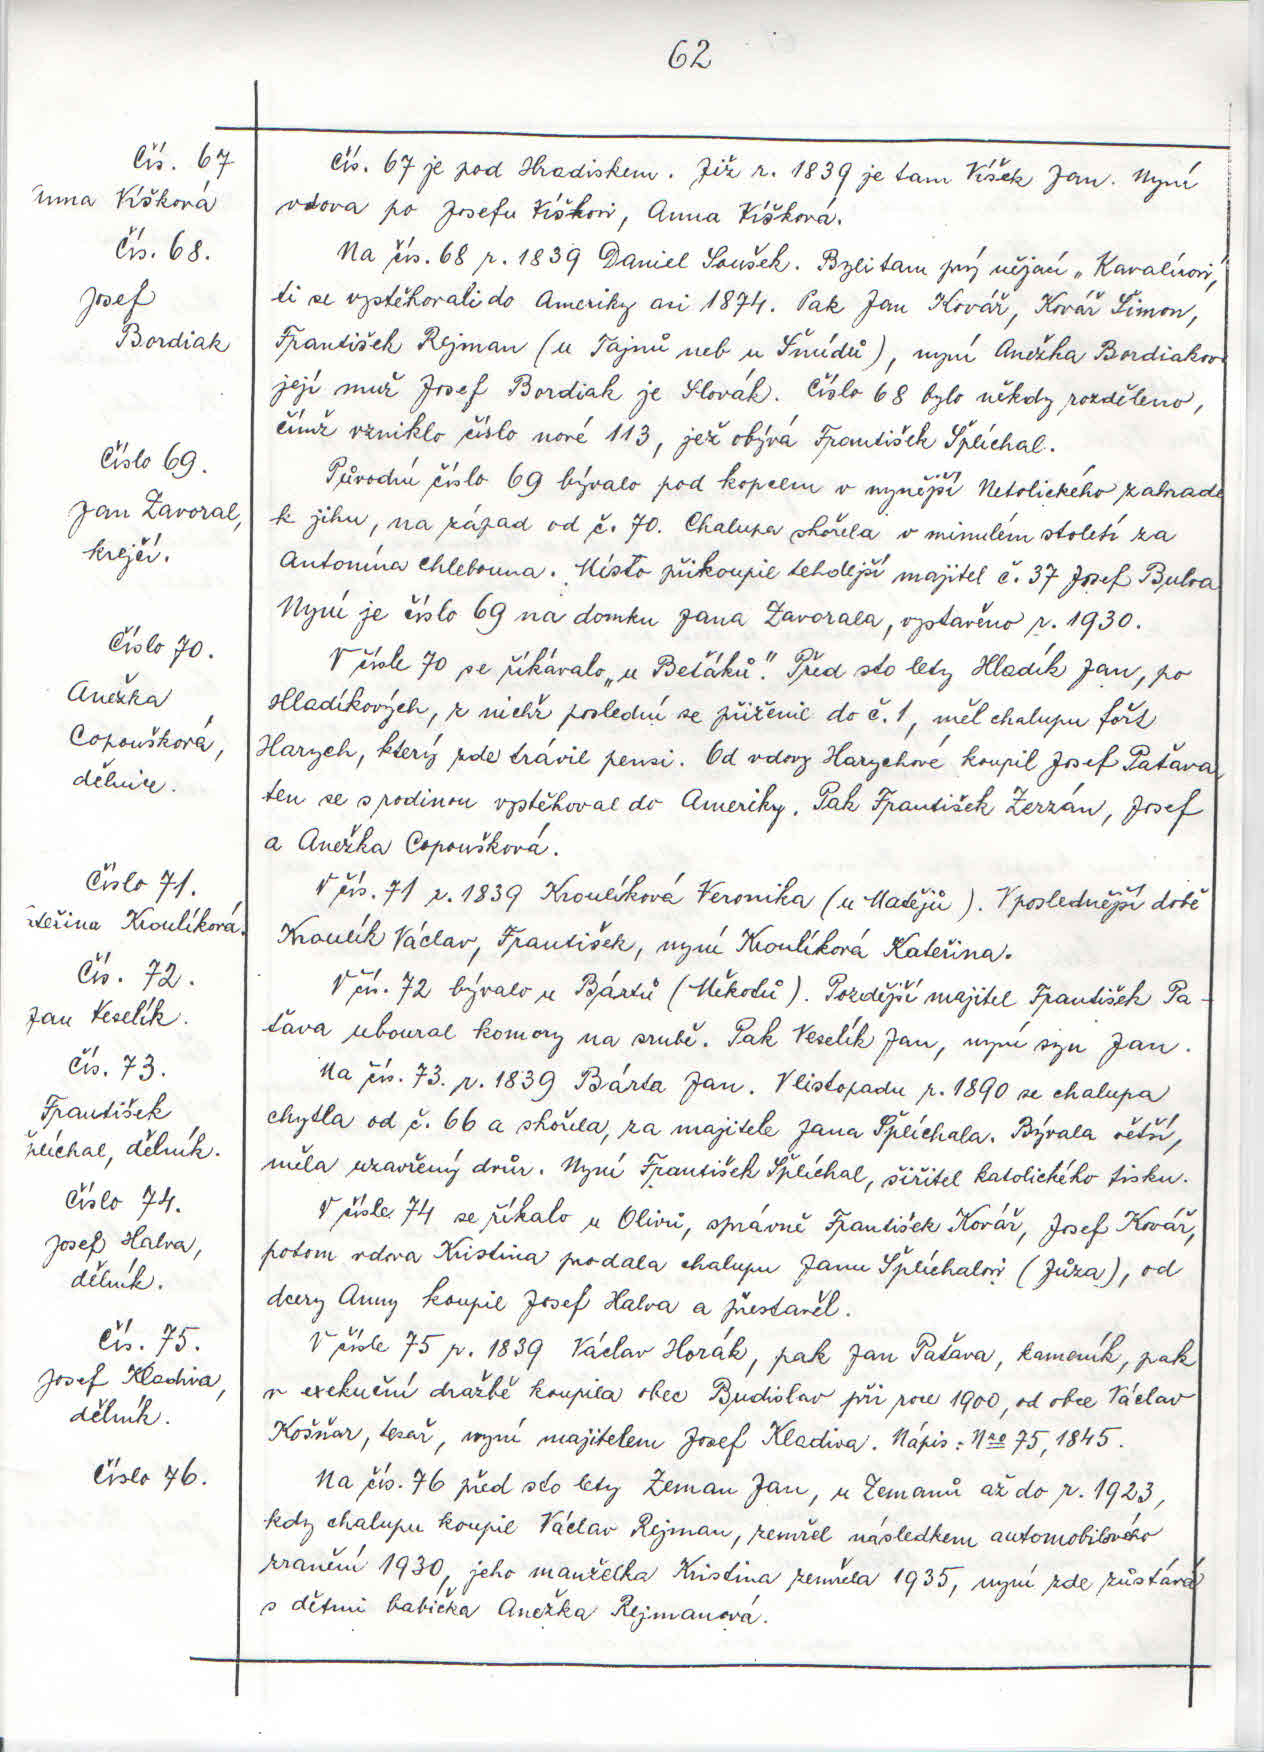 62
Čís. 67
Anna Víšková
Čís. 67 je pod Hradiskem. Již r. 1839 je tam Víšek Jan. Nyní
vdova po Josefu Víškovi, Anna Víšková.
Čís. 68.
Josef
Bordiak
Na čís. 68 r. 1839 Daniel Soušek. Byli tam prý nějací „Kavalírovi,
ti se vystěhovali do Ameriky asi 1874. Pak Jan Kovář, Kovář Šimon,
František Rejman (u Tajnů neb u Šmídů), nyní Anežka Bordiakov
její muž Josef Bordiak je Slovák. Číslo 68 bylo někdy rozděleno,
čímž vzniklo číslo nové 113, jež obývá František Šplíchal.
Číslo 69.
Jan Zavoral,
krejčí.
Původní číslo 69 bývalo pod kopcem v nynější Netolického zahradě
k jihu, na západ od č. 70. Chalupa shořela v minulém století za
Antonína Chlebouna. Místo přikoupil tehdejší majitel č. 37 Josef Bulva
Nyní je číslo 69 na domku Jana Zavorala, vystavěno r. 1930.
Číslo 70.
Anežka
Copoušková,
dělnice.
V čísle 70 se říkávalo „u Beťáků". Před sto lety Hladík Jan, po
Hladíkových, z nichž poslední se přiženil do č. 1, měl chalupu fořt
Harych, který zde trávil pensi. Od vdovy Harychové koupil Josef Paťava
ten se s rodinou vystěhoval do Ameriky. Pak František Zerzán, Josef
a Anežka Copoušková.
Číslo 71.
teřina Kroulíková.
V čís. 71 r. 1839 Kroulíková Veronika (u Matějů). V poslednější době
Kroulík Václav, František, nyní Kroulíková Kateřina.
Čís. 72.
Jan Veselík.
V čís. 72 bývalo u Bártů (Měkotů). Pozdější majitel František Pa-
ťava uboural komory na srubě. Pak Veselík Jan, nyní syn Jan.
Čís. 73.
František
Šplíchal, dělník.
Na čís. 73. r. 1839 Bárta Jan. V listopadu r. 1890 se chalupa
chytla od č. 66 a shořela, za majitele Jana Šplíchala. Bývala větší,
měla uzavřený dvůr. Nyní František Šplíchal, šiřitel katolického tisku.
Číslo 74.
Josef Halva,
dělník.
V čísle 74 se říkalo u Olivů, správně František Kovář, Josef Kovář,
potom vdova Kristina prodala chalupu Janu Šplíchalovi (Jůza), od
dcery Anny koupil Josef Halva a přestavěl.
Čís. 75.
Josef Kladiva,
dělník.
V čísle 75 r. 1839 Václav Horák, pak Jan Paťava, kameník, pak
v exekuční dražbě koupila obec Budislav při roce 1900, od obce Václav
Košňar, tesař, nyní majitelem Josef Kladiva. Nápis: Nro 75, 1845.
Číslo 76.
Na čís. 76 před sto lety Zeman Jan, u Zemanů až do r. 1923,
kdy chalupu koupil Václav Rejman, zemřel následkem automobilového
zranění 1930, jeho manželka Kristina zemřela 1935, nyní zde zůstává
s dětmi babička Anežka Rejmanová.